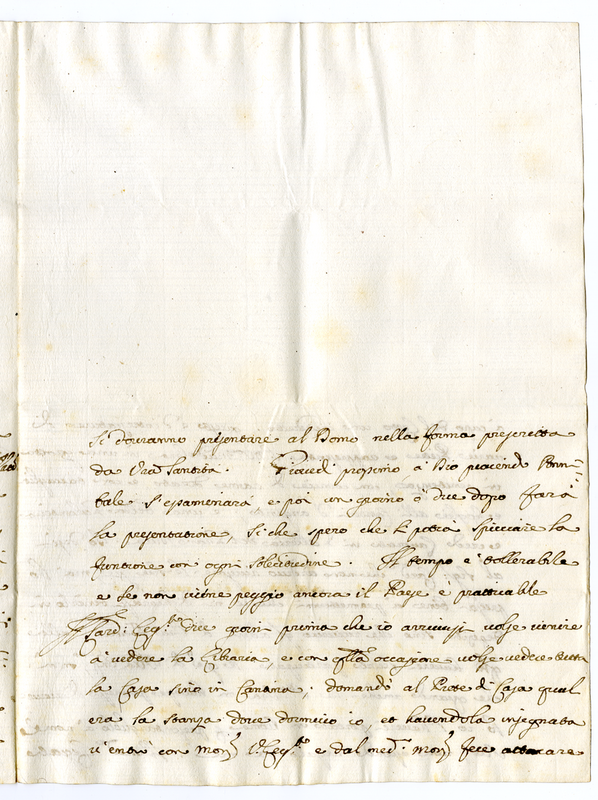 si douranno presentare al Domo nella forma prescritta
da Vrā Santità. Giovedì prossimo à Dio piacendo
tale s'esaminarà, e poi un giorno ò due dopo farà
la presentatione, si che spero che potrà spicciare la
funtione con ogni solecitudine. Il tempo è tollerabile
e se non viene peggio ancora il Paese è pratticabile
Il Card: Leg.to due giorni prima che io arrivassi volse venire
à vedere la Libraria, e con q̄lla occasione volse vedere tutta
la Casa sino in Cantina; domandò al Prete di Casa qual
era la stanza dove dormivo io, et havendola insegnata
v'entrò con Mon.r V.Leg.to e dal med.mo Mon.r fece attaccare